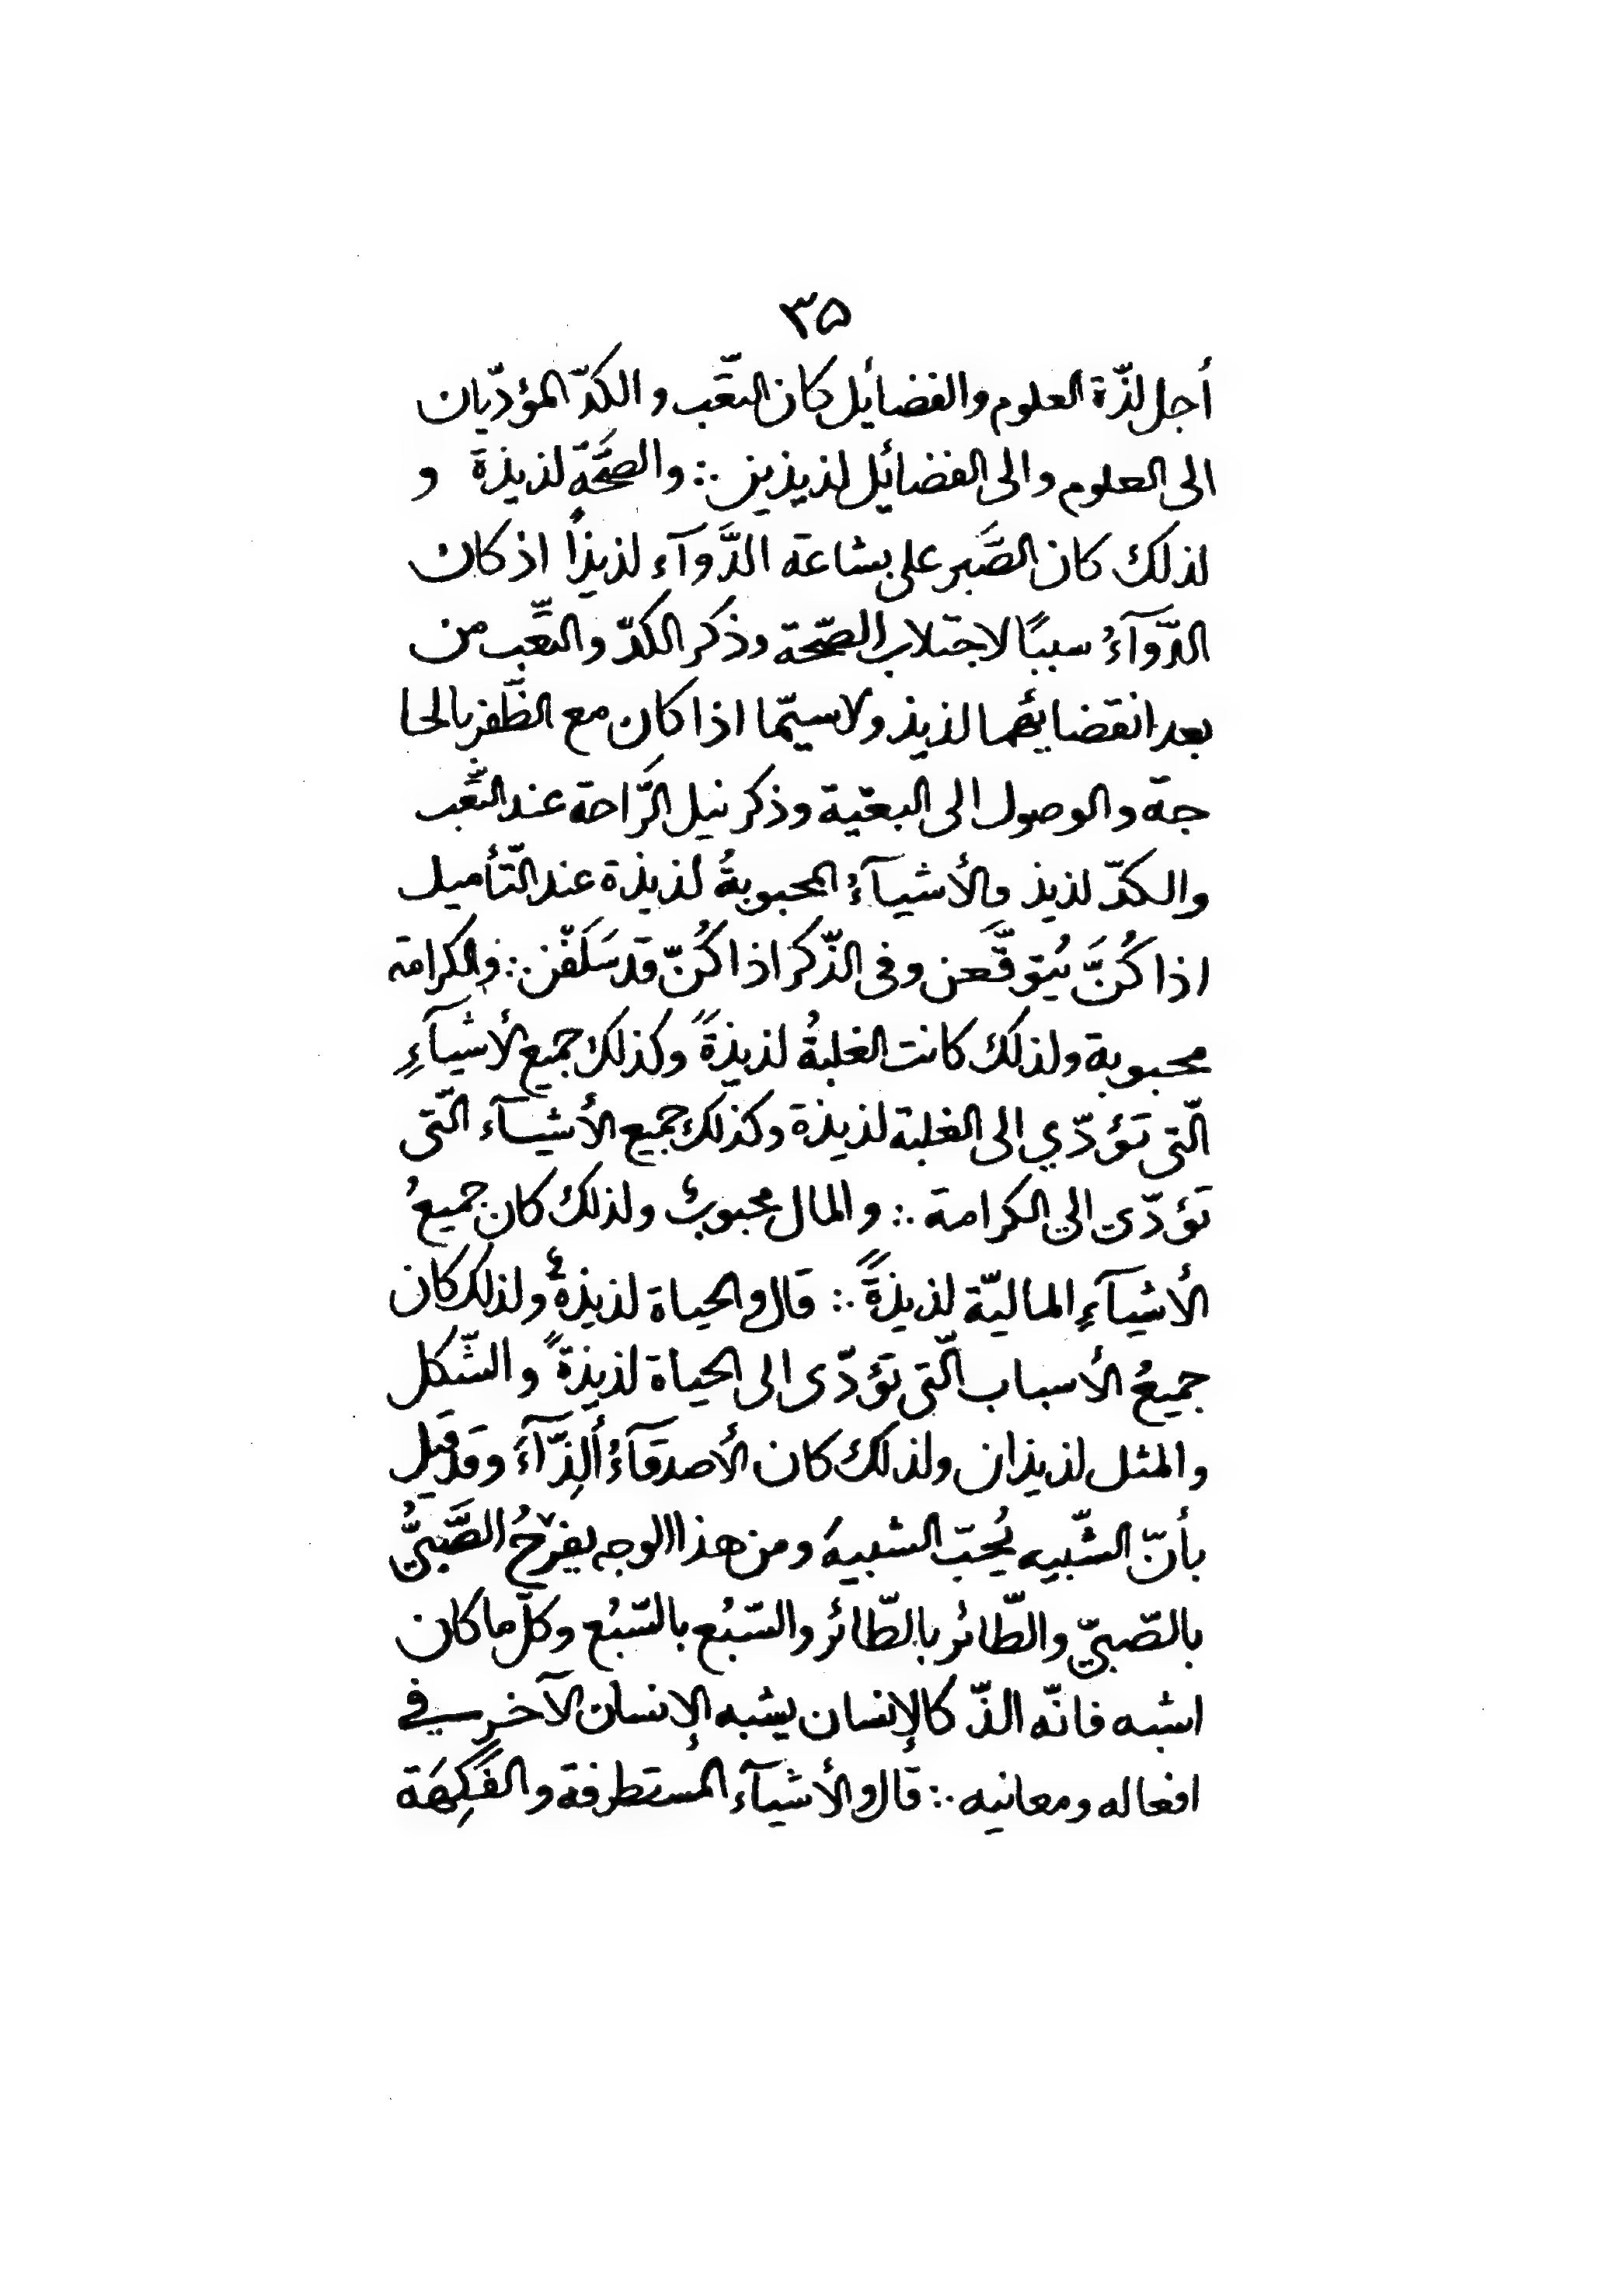 ۳۵
أجل لذّة العلوم والفضائل كان التّعَب و الكدّ المؤدّيان
الى العلوم والى الفضائل لذيذين ∴ والصّحَّة لذيذة و
لذلك كان الصَّبر على بشاعة الدَّوآء لذيذاً اذ كان
الدّوآءُ سببًا لاجتلاب الصّحة وذكر الكدّ والتّعَب من
بعد انقضائهما لذيذ ولاسيّما اذا كان مع الظّفر بالحا
جة والوصول الى البغية وذكر نيل الرَّاحة عند التّعَب
والكدّ لذيذ والأشيآءُ المحبوبةُ لذيذة عند التّأميل
اذا كُنَّ يُتوقَّعن وفى الذّكر اذا كُنّ قد سَلَفْن ∴ والكرامة
محبوبة ولذلك كانت الغلبةُ لذيذةً وكذلك جميع الأشيآءِ
الّتى تؤدّي الى الغلبة لذيذة وكذلك جميع الأشيآء الّتى
تؤدّى الي الكرامة ∴ والمال محبوبٌ ولذلك كان جميعُ
الأشيآءِ الماليّة لذيذةً ∴ قال والحياة لذيذةٌ ولذلك كان
جميعُ الأسباب الّتى تؤدّى الى الحياة لذيذةً والشّكل
والمثل لذيذان ولذلك كان الأصدقآءُ ألِذّآءَ وقد قيل
بأنّ الشّبيه يُحبّ الشبيهَ ومن هذا الوجه يفرَحُ الصَّبيُّ
بالصّبيّ والطّائر بالطّائر والسّبُع بالسّبُع وكلّ ما كان
اشبه فانّه الذّ كالإنسان يشبه الإنسان الآخر في
افعاله ومعانيه ∴ قال والأشيآء المستطرفة والفَكِهَة